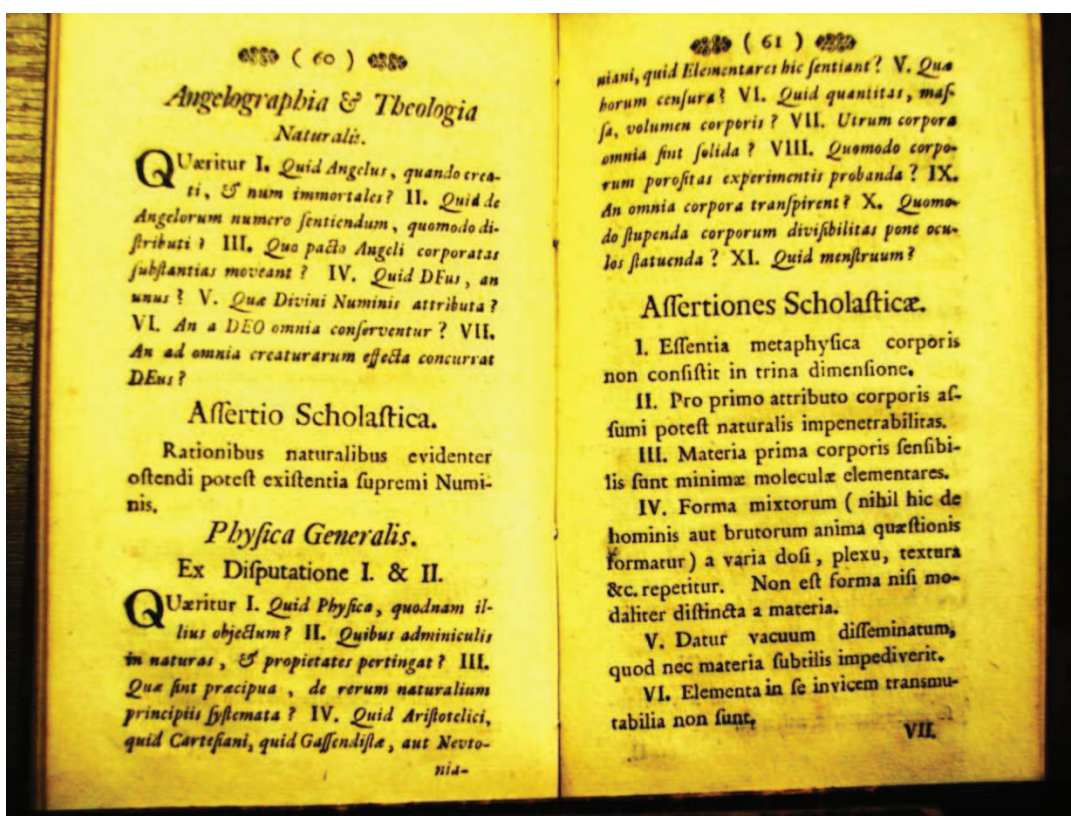 ( 60 )
Angelographia & Theologia
Naturalis.
QUæritur I. Quid Angelus, quando crea-
ti, & num immortales? II. Quid de
Angelorum numero ſentiendum, quomodo di-
ſtributi? III. Quo pacto Angeli corporatas
ſubſtantias moveant? IV. Quid DEus, an
unus? V. Quæ Divini Numinis attributa?
VI. An a DEO omnia conſerventur? VII.
An ad omnia creaturarum effecta concurrat
DEus?
Aſſertio Scholaſtica.
Rationibus naturalibus evidenter
oſtendi poteſt exiſtentia ſupremi Numi-
nis.
Phyſica Generalis.
Ex Diſputatione I. & II.
QUæritur I. Quid Phyſica, quodnam il-
lius objectum? II. Quibus adminiculis
in naturas, & propietates pertingat? III.
Quæ ſint præcipua, de rerum naturalium
principiis ſyſtemata? IV. Quid Ariſtotelici,
quid Carteſiani, quid Gaſſendiſtæ, aut Nevto-
nia-
( 61 )
niani, quid Elementares hic ſentiant? V. Quæ
horum cenſura? VI. Quid quantitas, maſ-
ſa, volumen corporis? VII. Utrum corpora
omnia ſint ſolida? VIII. Quomodo corpo-
rum poroſitas experimentis probanda? IX.
An omnia corpora tranſpirent? X. Quomo-
do ſtupenda corporum diviſibilitas pone ocu-
los ſtatuenda? XI. Quid menſtruum?
Aſſertiones Scholaſticæ.
I. Eſſentia metaphyſica corporis
non conſiſtit in trina dimenſione.
II. Pro primo attributo corporis aſ-
ſumi poteſt naturalis impenetrabilitas.
III. Materia prima corporis ſenſibi-
lis ſunt minimæ moleculæ elementares.
IV. Forma mixtorum ( nihil hic de
hominis aut brutorum anima quæſtionis
formatur) a varia doſi, plexu, textura
&c. repetitur. Non eſt forma niſi mo-
daliter diſtincta a materia.
V. Datur vacuum diſſeminatum,
quod nec materia ſubtilis impediverit.
VI. Elementa in ſe invicem transmu-
tabilia non ſunt.
VII.